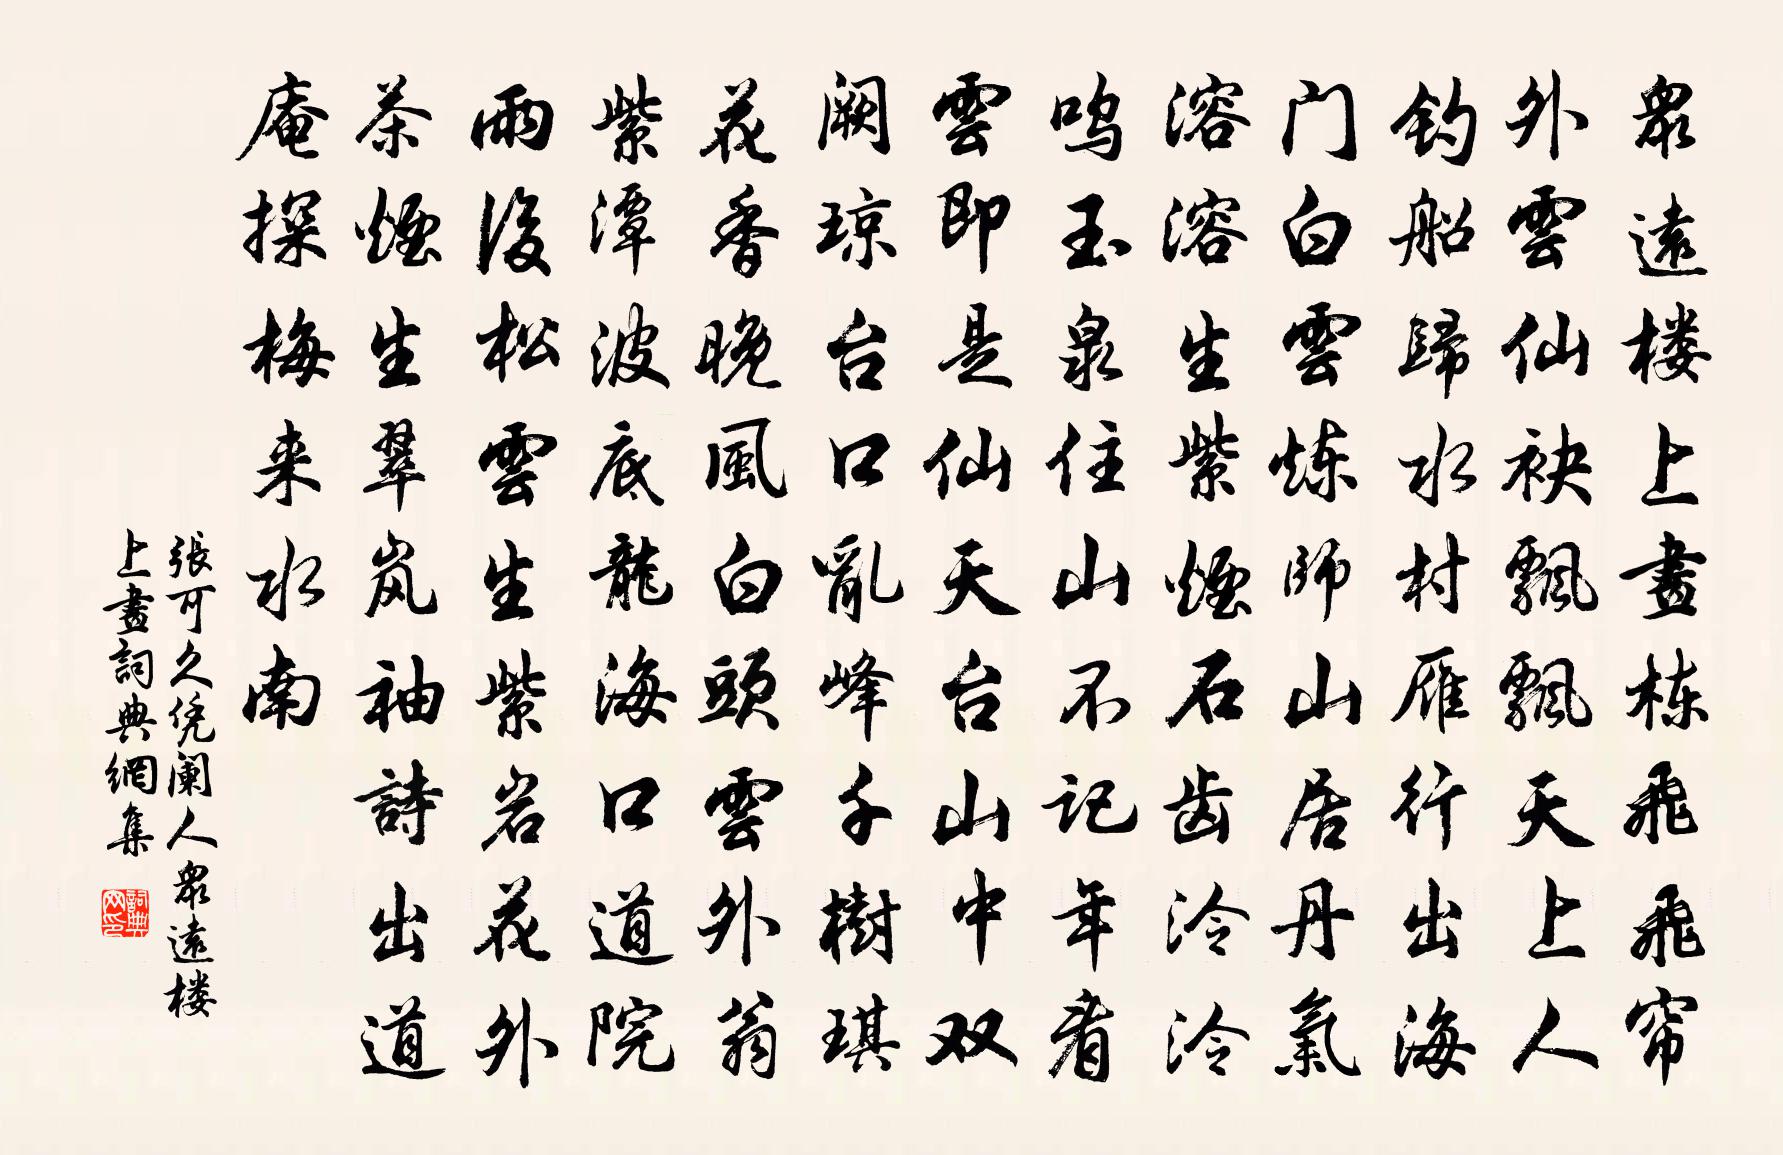 眾遠楼上畫栋飛飛帘
外雲仙袂飄飄天上人
钓船歸水村雁行出海
门白雲炼師山居丹氣
溶溶生紫煙石齿泠泠
鸣玉泉住山不记年看
雲即是仙天台山中双
阙琼台口亂峰千樹琪
花香晚風白頭雲外翁
紫潭波底龍海口道院
雨後松雲生紫岩花外
茶煙生翠岚袖詩出道
庵探梅来水南
張可久凭阑人眾遠楼
上畫詞典網集